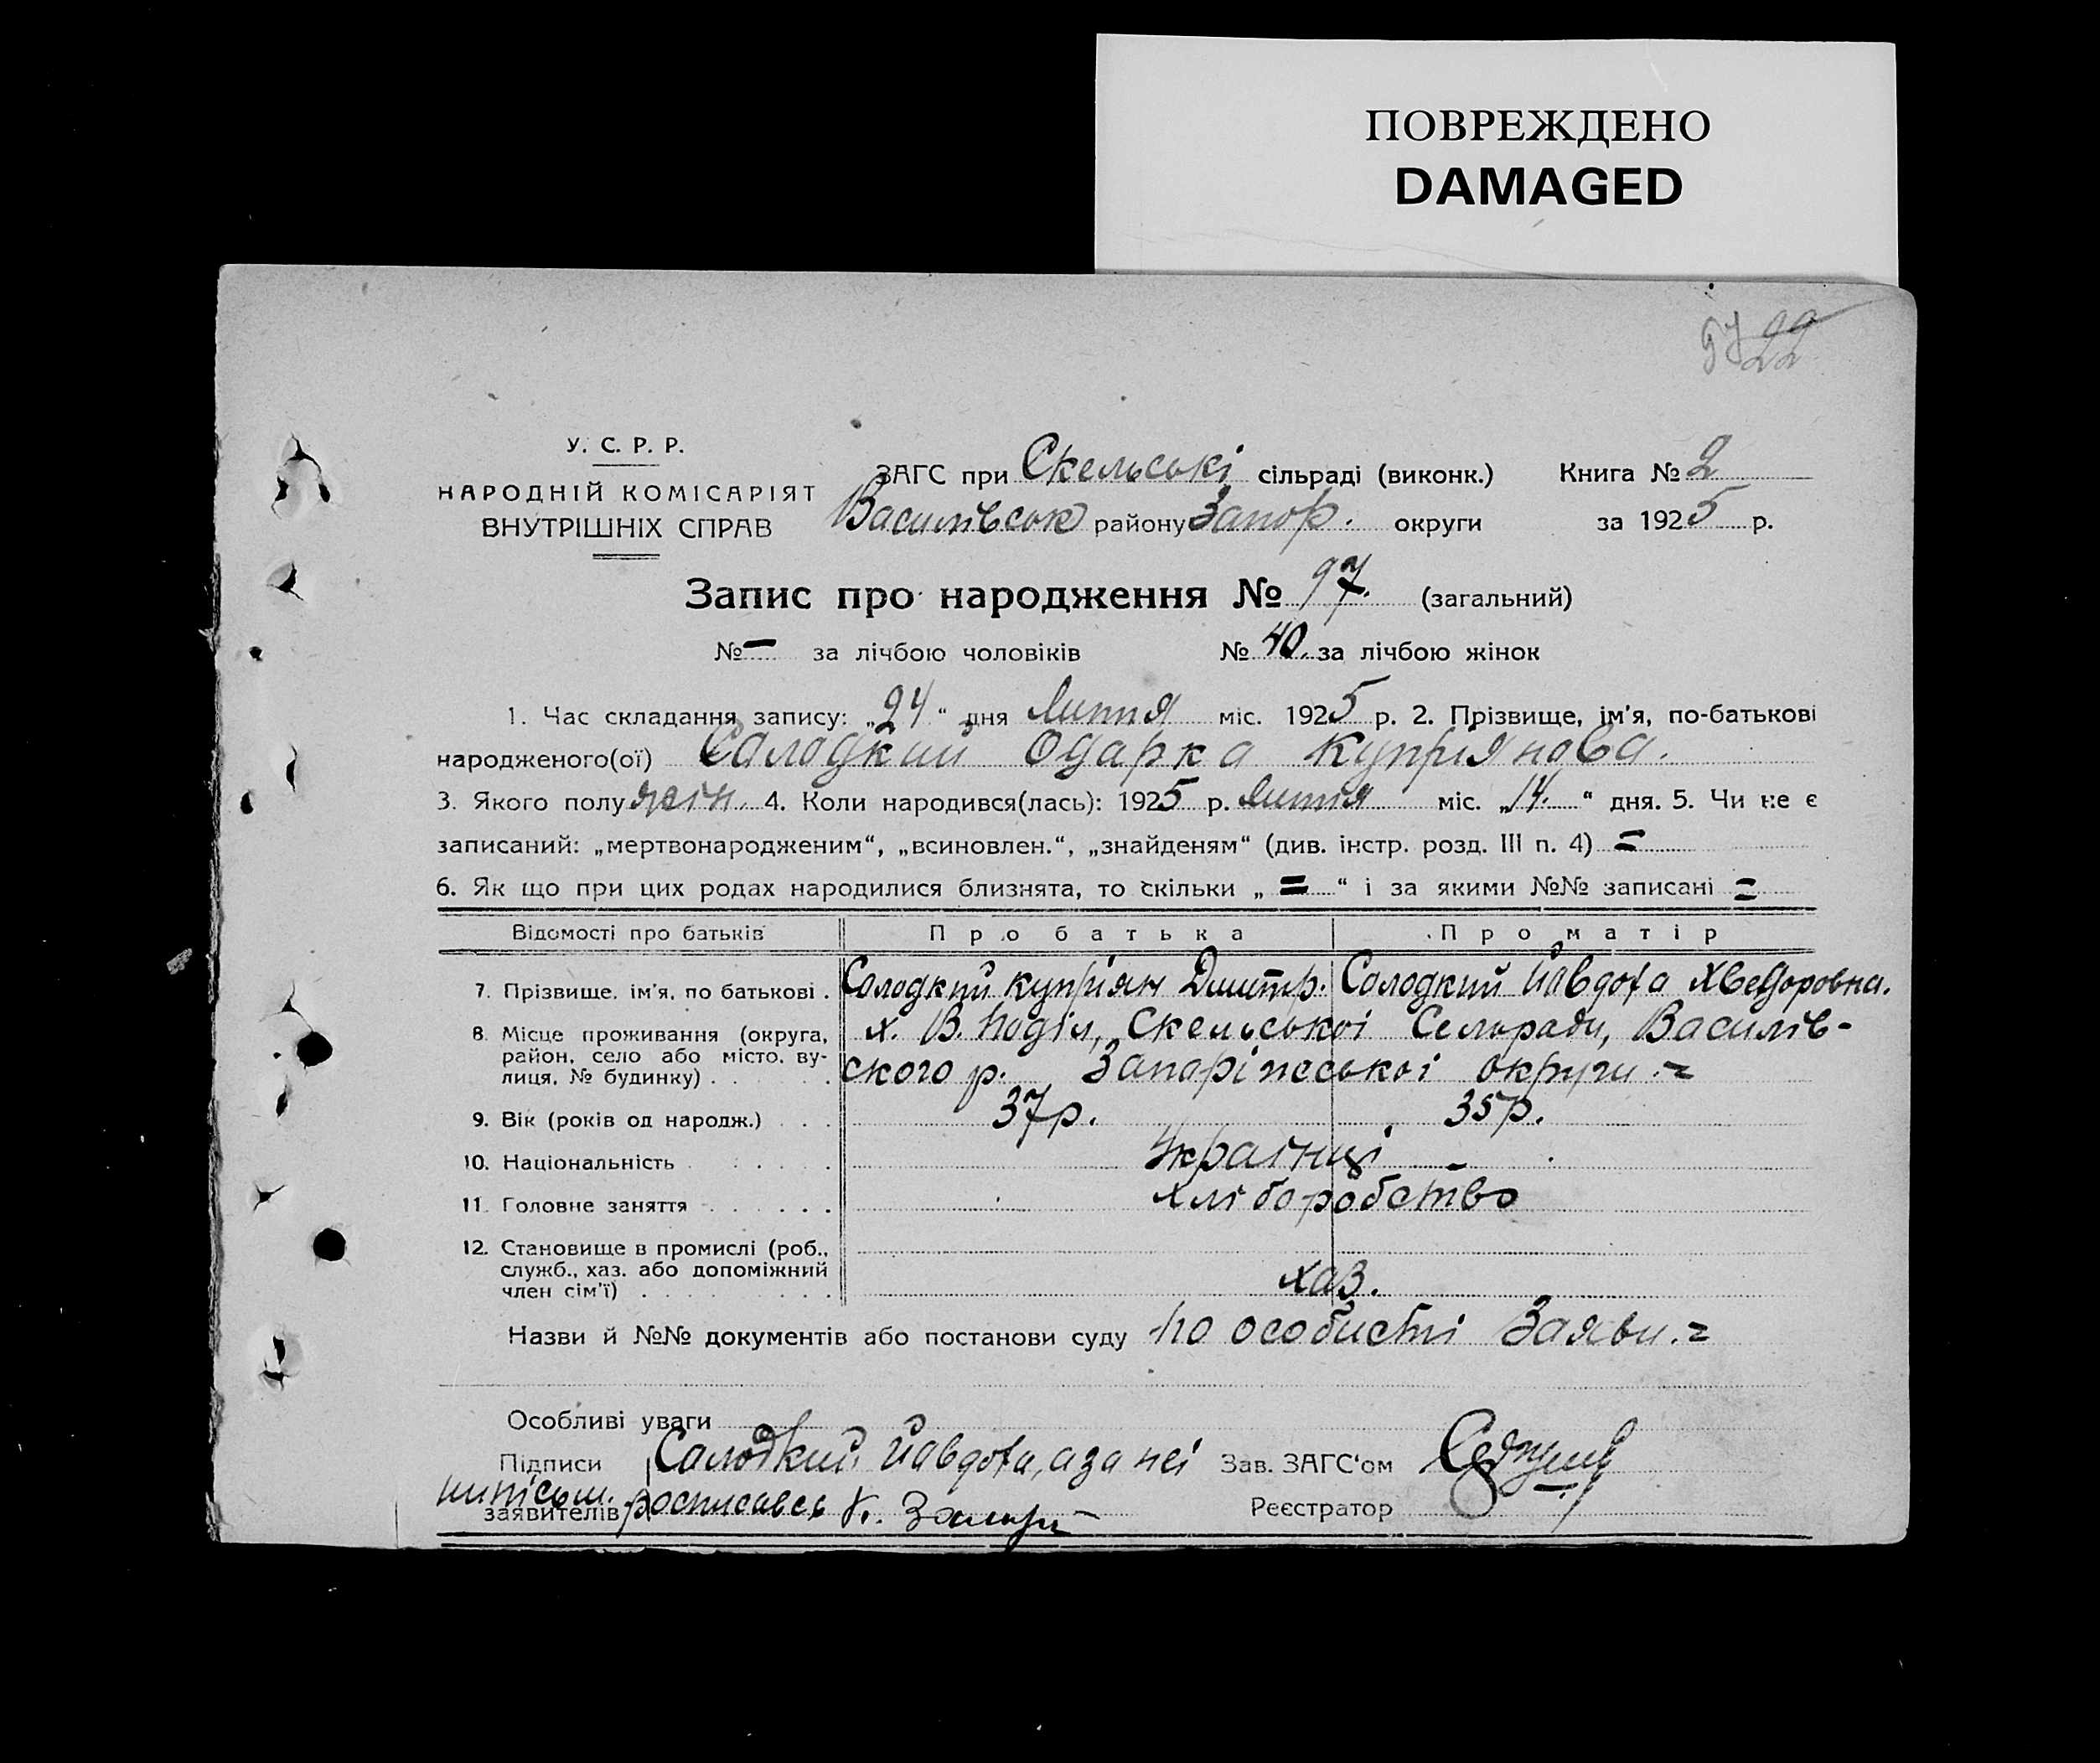 ПОВРЕЖДЕНО
DAMAGED
97 22
22
У. С. Р. Р.
НАРОДНІЙ КОМІСАРІЯТ
ВНУТРІШНІХ СПРАВ
ЗАГС при Скельські сільраді (виконк.) Книга № 2
Василівськ району Запор. округи за 1925 р.
Запис про народження № 97. (загальний)
№ – за лічбою чоловіків № 40. за лічбою жінок
1. Час складання запису: „24“ дня Липня міс. 1925 р. 2. Прізвище, ім'я, по-батькові
народженого(ої) Солодкий Одарка Купріянова.
3. Якого полу жін. 4. Коли народився(лась): 1925 р. Липня міс. „14.“ дня. 5. Чи не є
записаний: „мертвонародженим“, „всиновлен.“, „знайденям“ (див. інстр. розд. III п. 4) =
6. Як що при цих родах народилися близнята, то скільки „ = “ і за якими №№ записані =
Відомості про батьків Про батька Про матір
7. Прізвище, ім'я, по батькові . Солодкий Купріян Дмитр. Солодкий Йавдоха Хведоровна.
8. Місце проживання (округа, район, село або місто, вулиця, № будинку) . х. В. Поділ, Скельськоі Селоради, Василів-
ского р. Запоріжськоі округи =
9. Вік (років од народж.) . . . 37р. 35р.
10. Національність . . . . . Украінці
11. Головне заняття . . . . . . хліборобство
12. Становище в промислі (роб., служб., хаз. або допоміжний член сім'ї) . . . хаз.
Назви й №№ документів або постанови суду по особисті Заяви. =
Особливі уваги
Підписи Солодкий Йавдоха, а за неі Зав. ЗАГС'ом
заявителів росписавсь К. Реєстратор